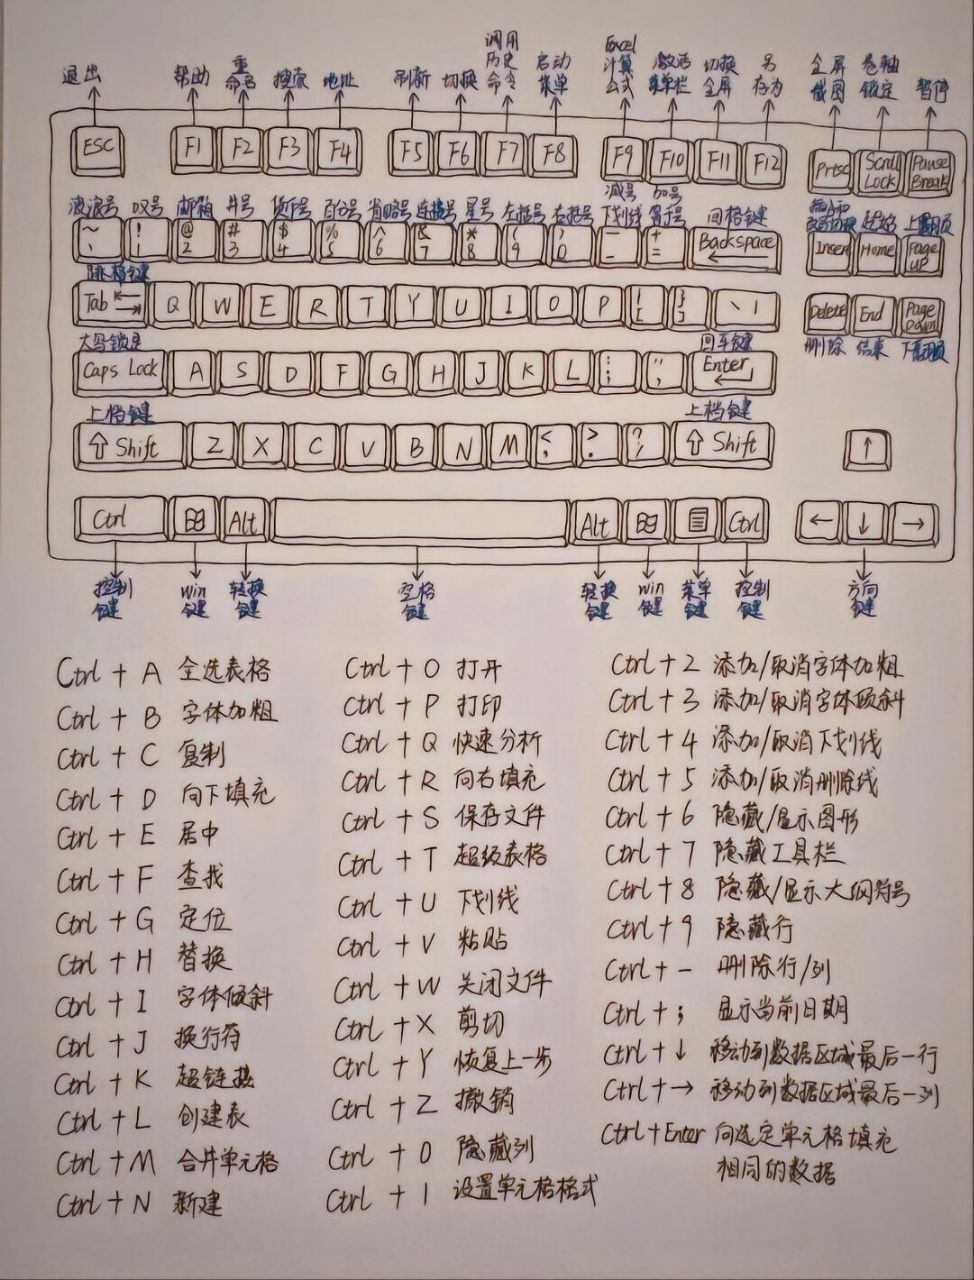 退出 帮助 重命名 搜索 地址 刷新 切换 调用历史命令 启动菜单 Excel计算公式 激活菜单栏 切换全屏 另存为 全屏截图 卷轴锁定 暂停
ESC F1 F2 F3 F4 F5 F6 F7 F8 F9 F10 F11 F12 Prtsc Scroll Lock Pause Break
波浪号 叹号 邮箱 井号 货币号 百分号 省略号 连接号 星号 左括号 右括号 减号下划线 加号等号 回格键 起始 上翻页
~ ` ! 1 @ 2 # 3 $ 4 % 5 ^ 6 & 7 * 8 ( 9 ) 0 — - + = Backspace Insert Home Page UP
跳格键
Tab Q W E R T Y U I O P { [ } ] \ | Delete End Page Down
大写锁定 回车键 删除 结束 下翻页
Caps Lock A S D F G H J K L : ; " , Enter
上档键 上档键
Shift Z X C V B N M < , > . ? / Shift ↑
Ctrl Alt Alt Ctrl ← ↓ →
控制键 win键 转换键 空格键 转换键 win键 菜单键 控制键 方向键
Ctrl + A 全选表格
Ctrl + B 字体加粗
Ctrl + C 复制
Ctrl + D 向下填充
Ctrl + E 居中
Ctrl + F 查找
Ctrl + G 定位
Ctrl + H 替换
Ctrl + I 字体倾斜
Ctrl + J 换行符
Ctrl + K 超链接
Ctrl + L 创建表
Ctrl + M 合并单元格
Ctrl + N 新建
Ctrl + O 打开
Ctrl + P 打印
Ctrl + Q 快速分析
Ctrl + R 向右填充
Ctrl + S 保存文件
Ctrl + T 超级表格
Ctrl + U 下划线
Ctrl + V 粘贴
Ctrl + W 关闭文件
Ctrl + X 剪切
Ctrl + Y 恢复上一步
Ctrl + Z 撤销
Ctrl + 0 隐藏列
Ctrl + 1 设置单元格格式
Ctrl + 2 添加/取消字体加粗
Ctrl + 3 添加/取消字体倾斜
Ctrl + 4 添加/取消下划线
Ctrl + 5 添加/取消删除线
Ctrl + 6 隐藏/显示图形
Ctrl + 7 隐藏工具栏
Ctrl + 8 隐藏/显示大纲符号
Ctrl + 9 隐藏行
Ctrl + - 删除行/列
Ctrl + ; 显示当前日期
Ctrl + ↓ 移动到数据区域最后一行
Ctrl + → 移动到数据区域最后一列
Ctrl + Enter 向选定单元格填充
相同的数据